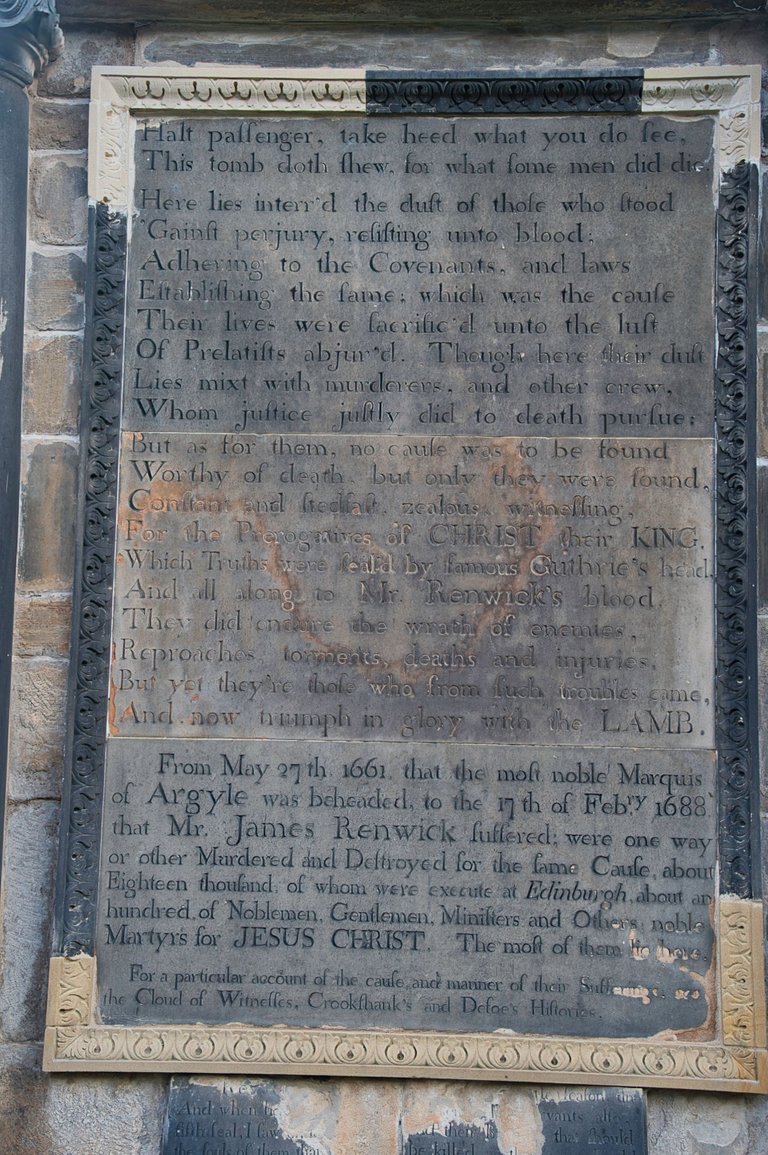 Halt paſſenger, take heed what you do ſee,
This tomb doth ſhew, for what ſome men did die.
Here lies interr'd the duſt of thoſe who ſtood
'Gainſt perjury, reſiſting unto blood;
Adhering to the Covenants, and laws
Eſtabliſhing the ſame; which was the cauſe
Their lives were ſacrific'd unto the luſt
Of Prelatiſts abjur'd. Though here their duſt
Lies mixt with murderers, and other crew,
Whom juſtice juſtly did to death purſue;
But as for them, no cauſe was to be found
Worthy of death, but only they were found,
Conſtant and ſtedfaſt, zealous, witneſſing,
For the Prerogatives of CHRIST their KING.
Which Truths were ſeal'd by famous Guthrie's head,
And all along to Mr. Renwick's blood.
They did endure the wrath of enemies,
Reproaches, torments, deaths and injuries.
But yet they're thoſe who from ſuch troubles came,
And now triumph in glory with the LAMB.
From May 27th. 1661. that the moſt noble Marquis
of Argyle was beheaded, to the 17th of Feb.ry 1688
that Mr. James Renwick ſuffered; were one way
or other Murdered and Deſtroyed for the ſame Cauſe, about
Eighteen thouſand, of whom were execute at Edinburgh, about an
hundred, of Noblemen, Gentlemen, Miniſters and Others; noble
Martyrs for JESUS CHRIST. The moſt of them lie here.
For a particular account of the cauſe, and manner of their Sufferings, see
the Cloud of Witneſſes, Crookſhank's and Defoe's Hiſtories.
And when he
fifth ſeal, I ſaw vants alſo
the ſouls of them that be killed that ſhould